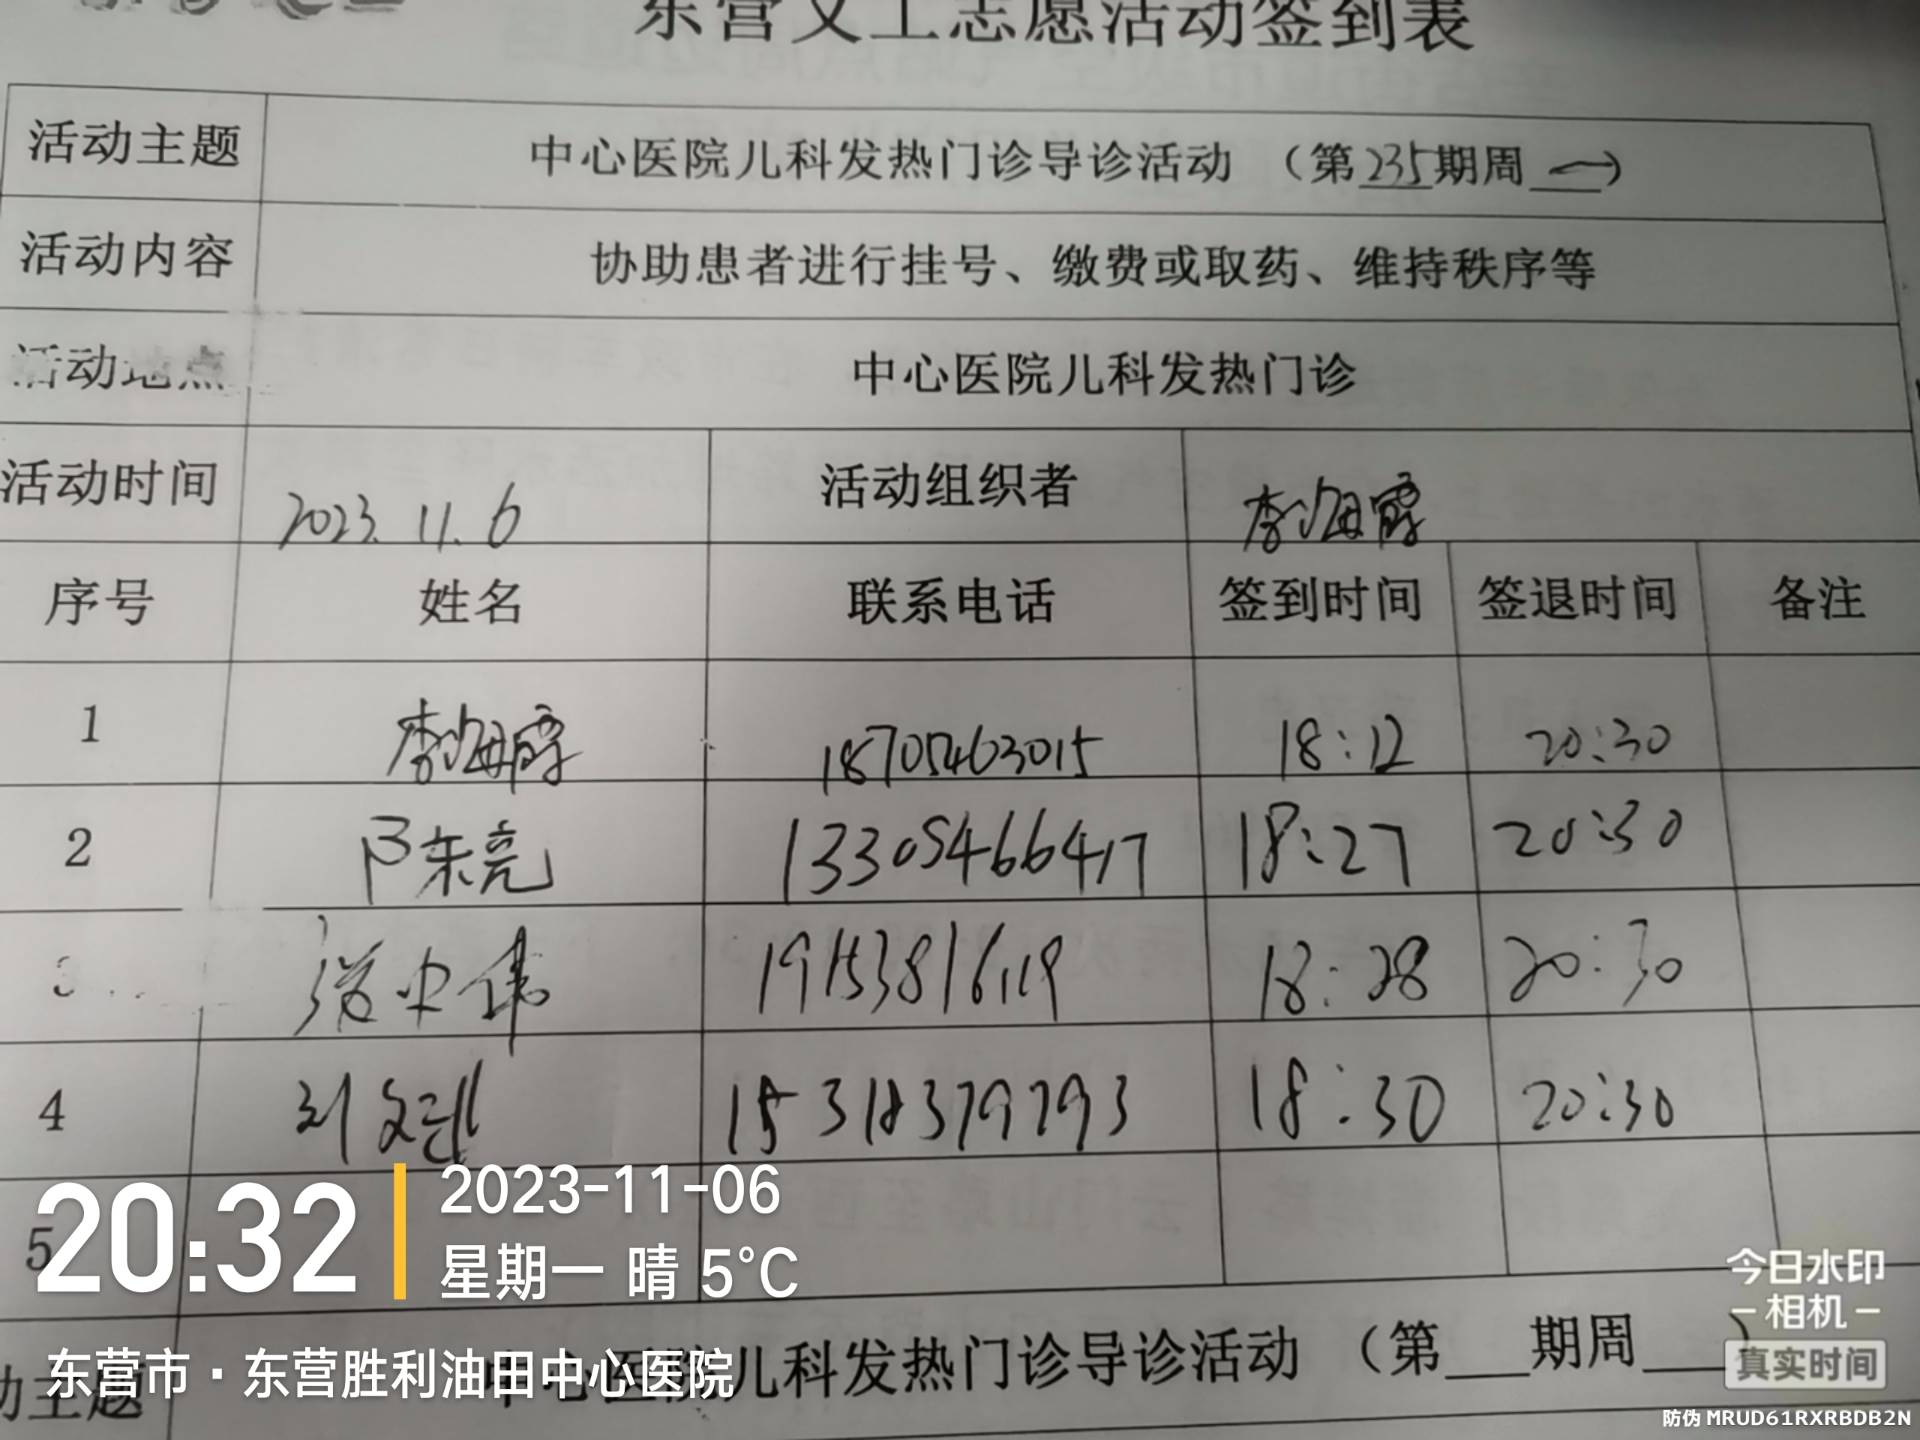 东营义工志愿活动签到表
活动主题 中心医院儿科发热门诊导诊活动 （第235期周一）
活动内容 协助患者进行挂号、缴费或取药、维持秩序等
活动地点 中心医院儿科发热门诊
活动时间 2023.11.6 活动组织者 李海霞
序号 姓名 联系电话 签到时间 签退时间 备注
1 李海霞 18705463015 18:12 20:30
2 陈亮 13305466417 18:27 20:30
3 19153816119 18:28 20:30
4 刘 15318379793 18:30 20:30
5
20:32 2023-11-06
星期一 晴 5°C
东营市·东营胜利油田中心医院
动主题 中心医院儿科发热门诊导诊活动 （第___期周___）
今日水印
相机
真实时间
防伪 MRUD61RXRBDB2N